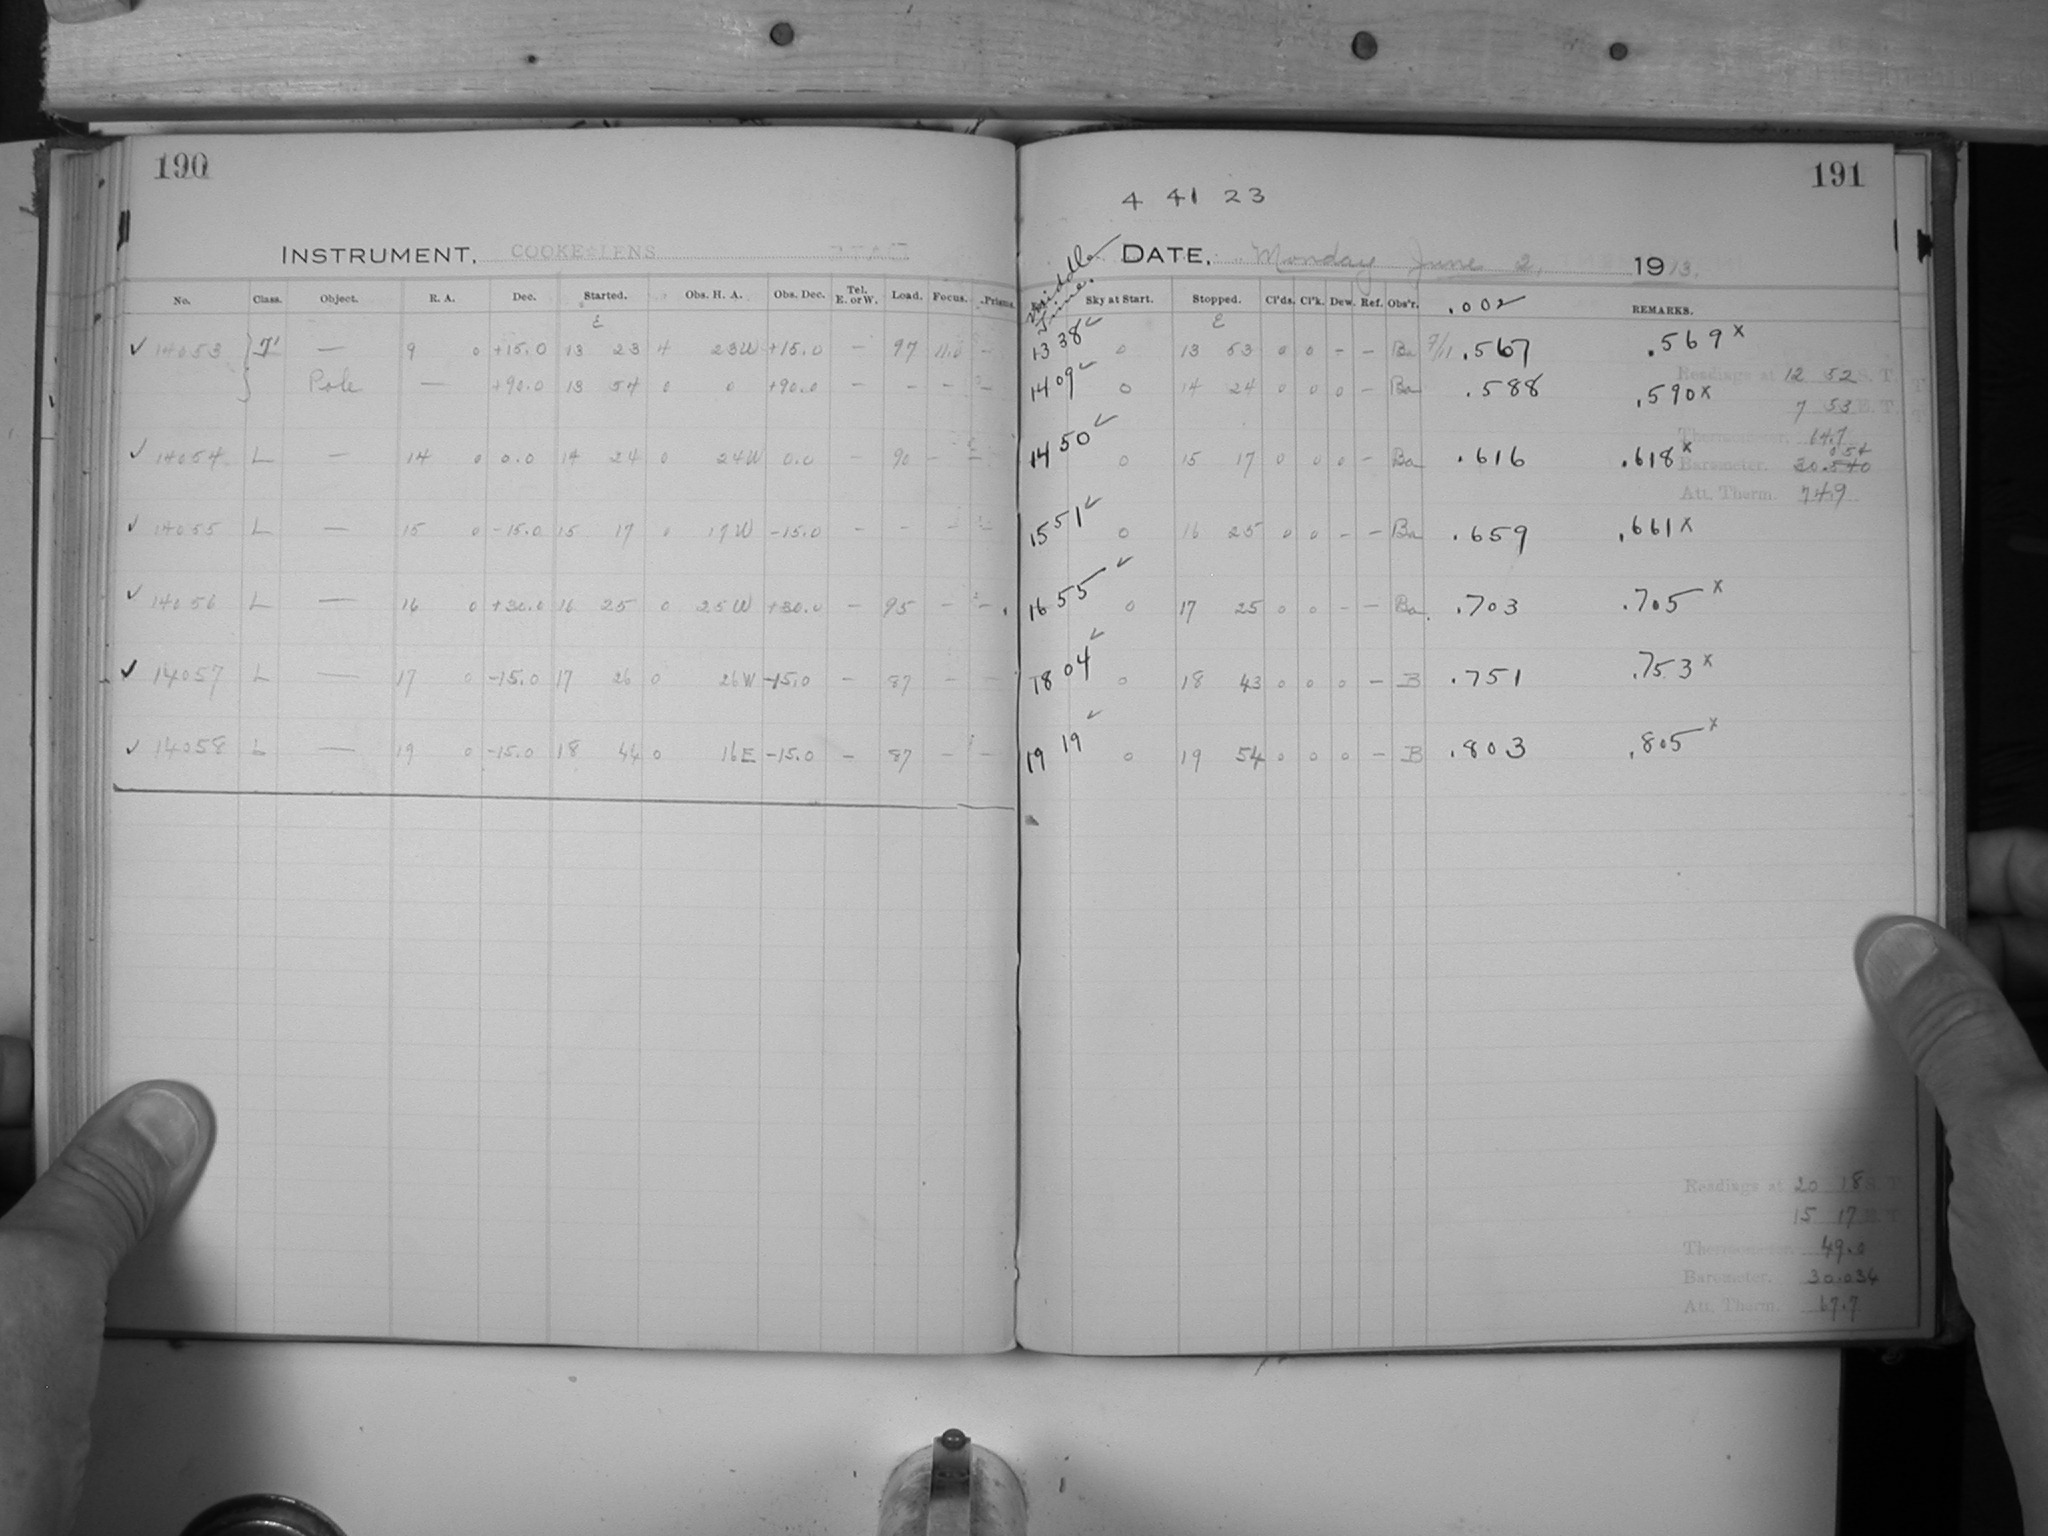 190
INSTRUMENT, COOKE LENS
No. Class. Object. R. A. Dec. Started. Obs. H. A. Obs. Dec. Tel. E. or W. Load. Focus. Prisms.
ε
✓ 14053 — 9 0 +15.0 13 23 4 23W +15.0 — 97 11.0 —
Pole — +90.0 13 54 0 0 +90.0 — — — —
✓ 14054 L — 14 0 0.0 14 24 0 24W 0.0 — 90 — —
✓ 14055 L — 15 0 -15.0 15 17 0 17W -15.0 — — — —
✓ 14056 L — 16 0 +30.0 16 25 0 25W +30.0 — 95 — —
✓ 14057 L — 17 0 -15.0 17 26 0 26W -15.0 — 87 — —
✓ 14058 L — 19 0 -15.0 18 44 0 16E -15.0 — 87 — —
191
4 41 23
DATE, Monday June 2, 1913.
Middle Time. Sky at Start. Stopped. Cl'ds. Cl'k. Dew. Ref. Obs'r. .002 REMARKS.
ε
13 38 ✓ 0 13 53 0 0 - - Ba 7/11 .567 .569 x
14 09 ✓ 0 14 24 0 0 0 - Ba .588 .590 x
14 50 ✓ 0 15 17 0 0 0 - Ba .616 .618 x
15 51 ✓ 0 16 25 0 0 - - Ba .659 .661 x
16 55 ✓ 0 17 25 0 0 - - Ba .703 .705 x
18 04 ✓ 0 18 43 0 0 0 - B .751 .753 x
19 19 ✓ 0 19 54 0 0 0 - B .803 .805 x
Readings at 12 52 S. T.
7 53 E. T.
Thermometer. 64.7
054
Barometer. 30.540
Att. Therm. 74.9
Readings at 20 18 S. T.
15 17 E. T.
Thermometer. 49.0
Barometer. 30.034
Att. Therm. 67.7